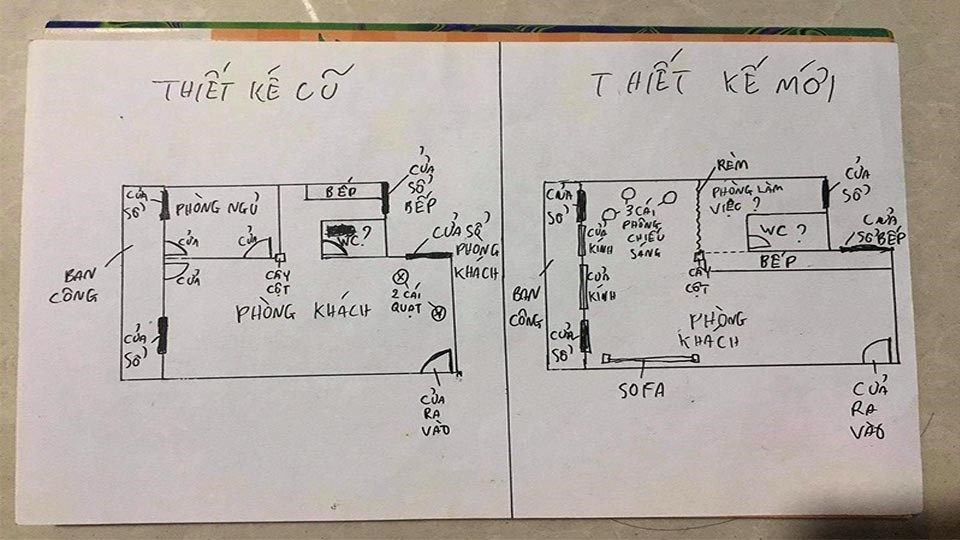 THIẾT KẾ CŨ
CỬA
SỔ
PHÒNG NGỦ
BẾP
CỬA
SỔ
BẾP
WC?
CỬA SỔ
PHÒNG
KHÁCH
CỬA
CỬA
CỬA
BAN
CÔNG
CÂY
CỘT
2 CÁI
QUẠT
PHÒNG KHÁCH
CỬA
SỔ
CỬA
RA
VÀO
THIẾT KẾ MỚI
RÈM
CỬA
SỔ
3 CÁI
PHÔNG
CHIẾU
SANG
PHÒNG LÀM
VIỆC?
CỬA
SỔ
WC?
CỬA
SỔ BẾP
BẾP
CỬA
KÍNH
CỬA
KÍNH
CÂY
CỘT
BAN
CÔNG
CỬA
SỔ
PHÒNG
KHÁCH
SOFA
CỬA
RA
VÀO